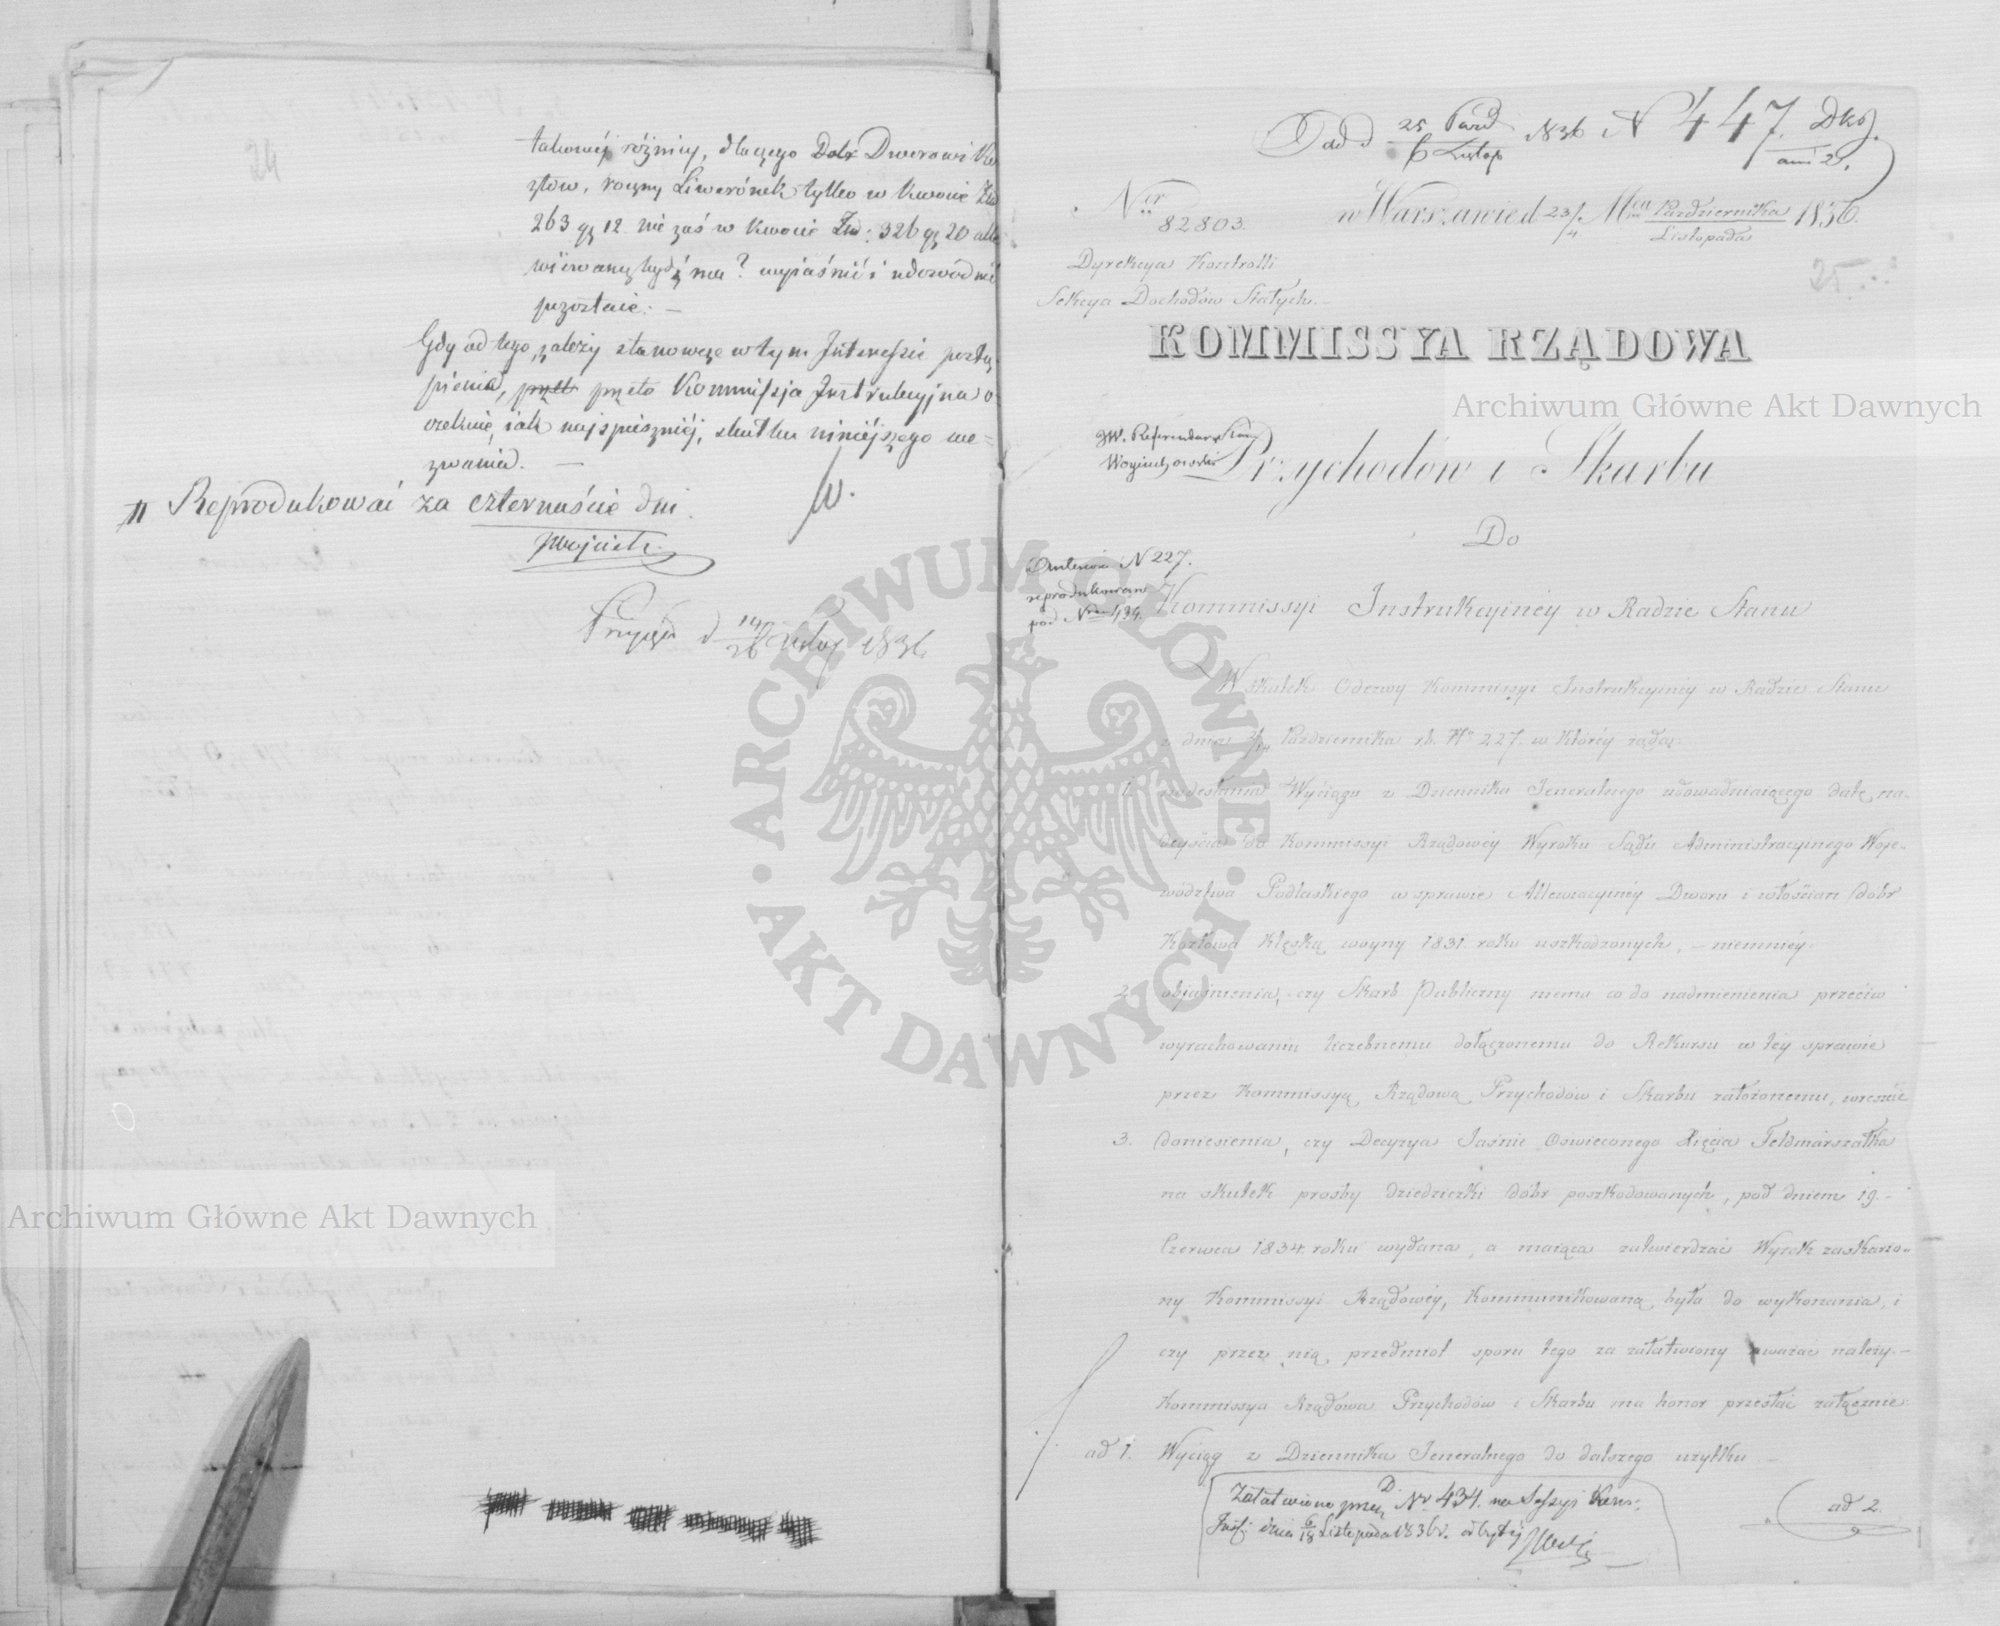 24
takowéj różnicy, dlaczego Dworowi Ko
złów, roczny Liwerónek tylko w kwocie Złp
263 gr 12 nie zaś w kwocie Złp: 326 gr 20 alle
wiiowany bydź ma? wyiaśnić i udowodnić
pozostaie: —
Gdy od tego zależy stanowcze w tym Interessie postą
pienia, przeto Kommissja Instrukcyjna o
czekuie, iak najspieszniéj, skutku niniéjszego we=
zwania. —
Reprodukować za czternaście dni.
JWojciech.
d 14/26 1836.
Odd d 25 Paźd/6 Listop 1836 N 447. Dks.
ani 2.
Ner 82803.
w Warszawie d 23/4. Mca Października/Listopada 1836.
25
Dyrekcya Kontrolli
Sekcya Dochodów Stałych. —
KOMMISSYA RZĄDOWA
JW. Referendarz Stanu
Woyciechowski
Przychodów i Skarbu
Do
N 227.
reprodukowano
pod Nrem 434.
Kommissyi Instrukcyinéy w Radzie Stanu
W skutek Odezwy Kommissyi Instrukcyinéy w Radzie Stanu
z dnia 2/14 Października r.b. No 227. w któréy żąda:
1. nadesłania Wyciągu z Dziennika Jeneralnego udowadniaiącego datę na-
deyścia do Kommissyi Rządowéy Wyroku Sądu Administracyinego Woje-
wództwa Podlaskiego w sprawie Allewiacyinéy Dworu i włościan dóbr
Kozłowa Klęską woyny 1831. roku uszkodzonych, — niemniéy.
2. obiaśnienia, czy Skarb Publiczny niema co do nadmienienia przeciw
wyrachowaniu liczebnemu dołączonemu do Rekursu w téy sprawie
przez Kommissyą Rządową Przychodów i Skarbu założonemu, wreszcie
3. doniesienia, czy Decyzya Jaśnie Oświeconego Xięcia Feldmarszałka
na skutek prośby dziedziczki dóbr poszkodowanych, pod dniem 19. -
Czerwca 1834. roku wydana, a maiąca zatwierdzać Wyrok zaskarżo-
ny Kommissyi Rządowéy, kommunikowaną była do wykonania, i
czy przez nią, przedmiot sporu tego za załatwiony uważać należy. —
Kommissya Rządowa Przychodów i Skarbu ma honor przesłać załącznie
ad 1. Wyciąg z Dziennika Jeneralnego do dalszego użytku. —
Załatwiono przez D. Nr 434. na Sessyi Kom:
Instr: dnia 6/18 Listopada 1836 r. odbytéj
ad 2.
Archiwum Główne Akt Dawnych
Archiwum Główne Akt Dawnych
ARCHIWUM GŁÓWNE • AKT DAWNYCH •